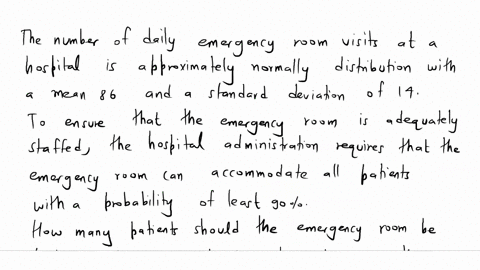 The number of daily emergency room visits at a
hospital is approximately normally distribution with
a mean 86 and a standard deviation of 14.
To ensure that the emergency room is adequately
staffed, the hospital administration requires that the
emergency room can accommodate all patients
with a probability of least 90%.
How many patients should the emergency room be